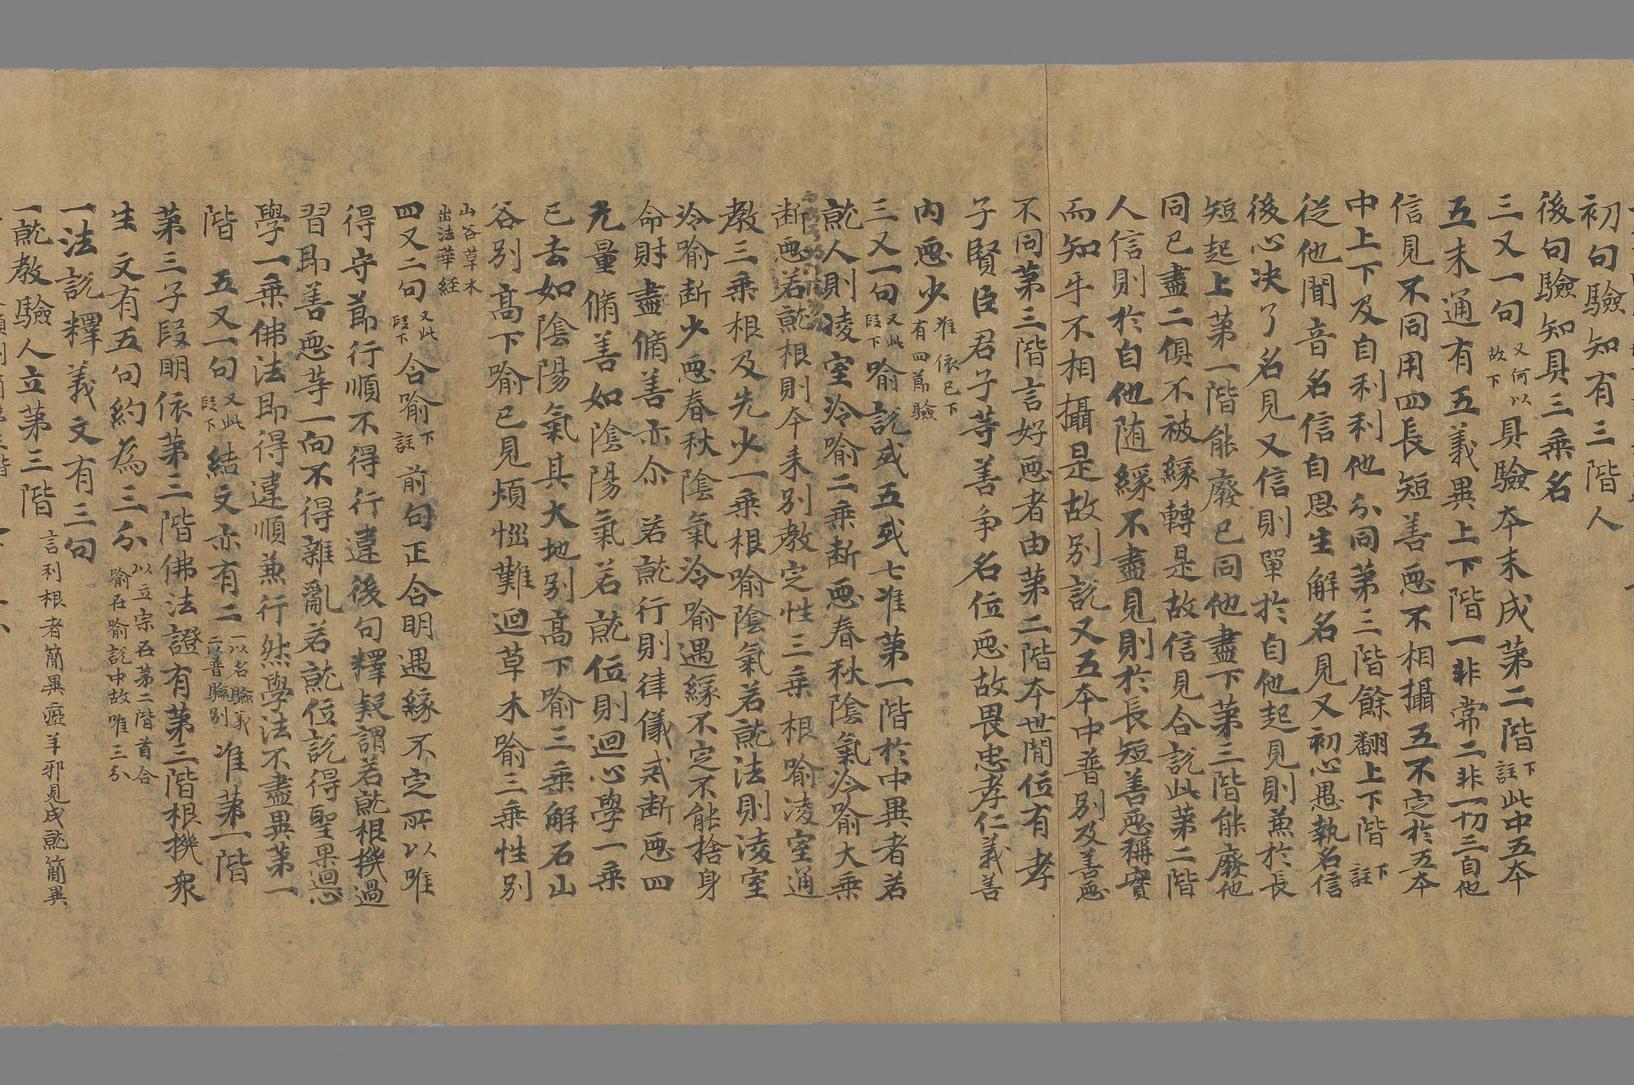 初句驗知有三階人
後句驗知具三乘名
三又一句又何以故下具驗本末成第二階下註此中五本
五末通有五義異上下階一非常二非一切三自他
信見不同用四長短善惡不相攝五不定於五本
中上下及自利利他分同第三階餘翻上下階下註
從他聞音名信自思生解名見又初心愚執名信
後心決了名見又信則單於自他起見則兼於長
短起上第一階能廢已同他盡下第三階能廢他
同已盡二俱不被緣轉是故信見合說此第二階
人信則於自他随緣不盡見則於長短善惡稱實
而知乎不相攝是故別說又五本中普別及善惡
不同第三階言好惡者由第二階本世間位有孝
子賢臣君子等善爭名位惡故畏忠孝仁義善
內惡少准依已下有四藂驗
三又一句又此段下喻說或五或七准第一階於中異者若
就人則淩室冷喻二乘斷惡春秋陰氣冷喻大乘
斷惡若就根則本来別教定性三乘根喻淩室通
教三乘根及先少一乘根喻陰氣若就法則淩室
冷喻斷少惡春秋陰氣冷喻遇緣不定不能捨身
命財盡脩善亦尒若就行則律儀戒斷惡四
无量脩善如陰陽氣若就位則迴心學一乘
已去如陰陽氣其大地別高下喻三乘解石山
谷別高下喻已見煩惱難迴草木喻三乘性別
山谷草木出法華經
四又二句又此段下合喻下註前句正合明遇緣不定所以唯
得守節行順不得行違後句釋疑謂若就根機過
習即善惡等一向不得雜亂若就位說得聖果迴惡
學一乘佛法即得違順兼行然學法不盡異第一
階五又一句又此段下結文亦有二一以名驗義二以普驗別准第一階
第三子段明依第三階佛法證有第三階根機衆
生文有五句約為三分以立宗在第二階首合喻在喻說中故唯三分
一法說釋義文有三句
一就教驗人立第三階言利根者簡異瘂羊邪見成就簡異